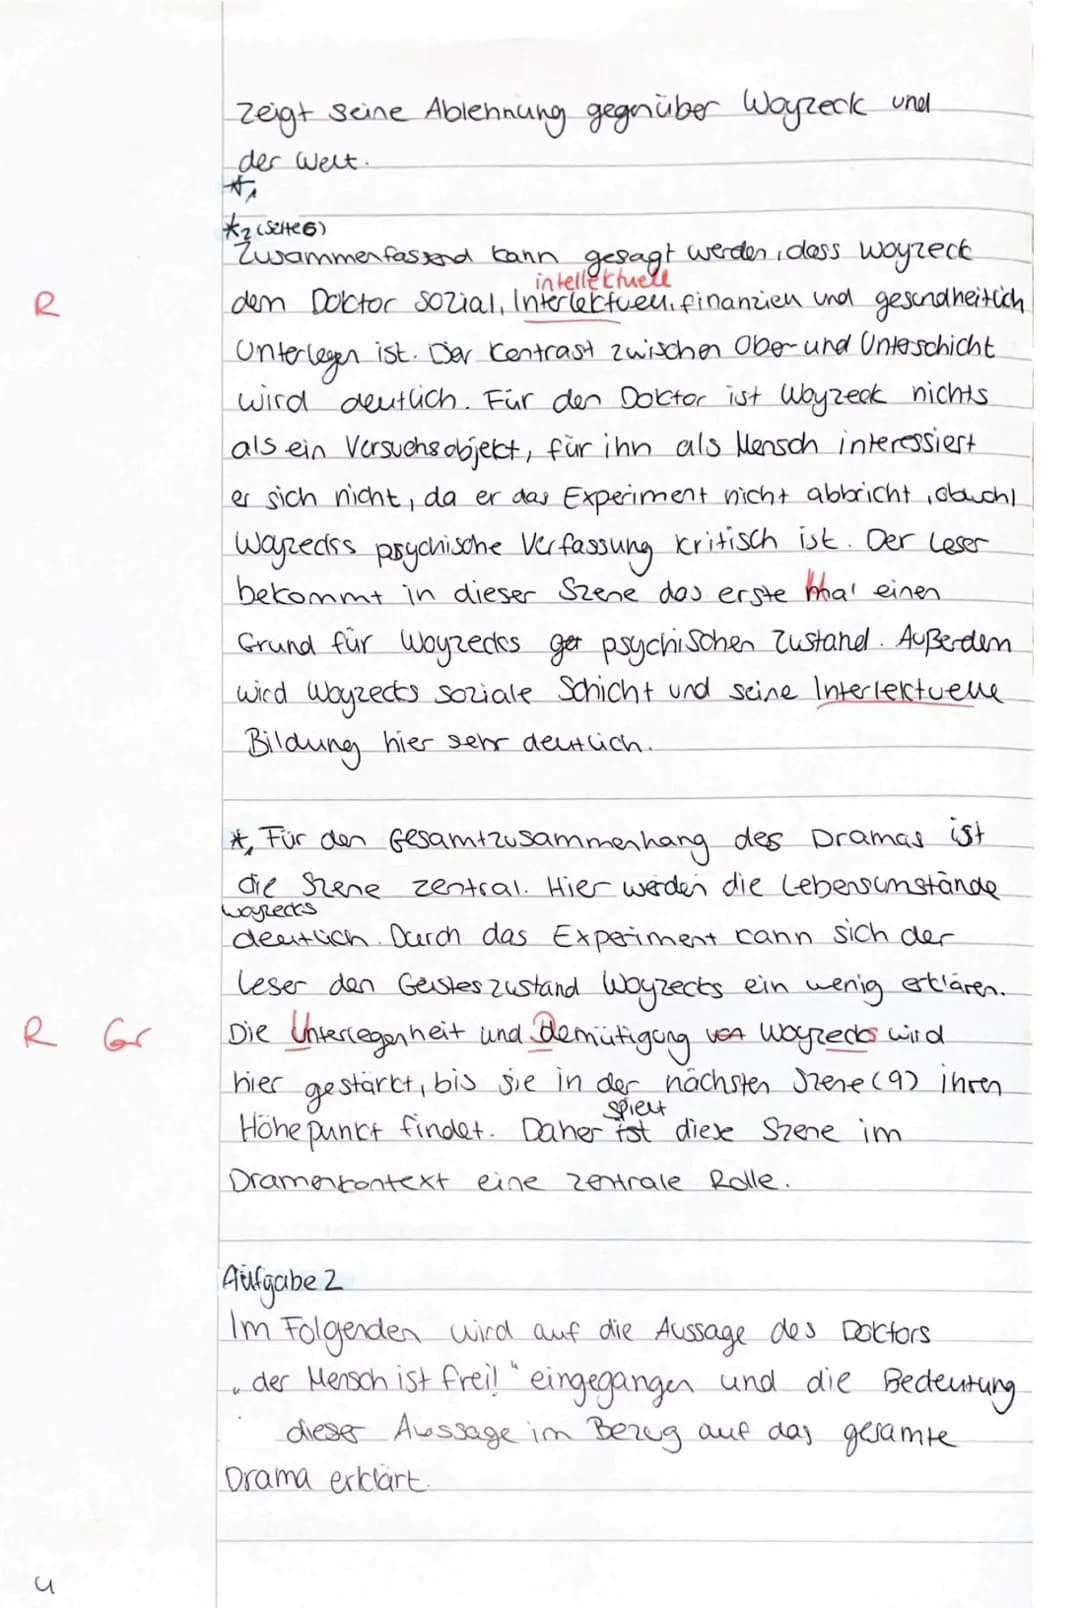 zeigt seine Ablehnung gegenüber Woyzeck und
der Welt.
*1
*2 (Seite 6)
Zusammenfassend kann gesagt werden, dass Woyzeck
intellektuell
R dem Doktor sozial, Interlektuell, finanziell und gesundheitlich
Unterlegen ist. Der Kontrast zwischen Ober- und Unterschicht
wird deutlich. Für den Doktor ist Woyzeck nichts
als ein Versuchsobjekt, für ihn als Mensch interessiert
er sich nicht, da er das Experiment nicht abbricht, obwohl
Woyzecks psychische Verfassung kritisch ist. Der Leser
bekommt in dieser Szene das erste Mal einen
Grund für Woyzecks psychischen Zustand. Außerdem
wird Woyzecks soziale Schicht und seine Interlektuelle
Bildung hier sehr deutlich.
*1 Für den Gesamtzusammenhang des Dramas ist
die Szene zentral. Hier werden die Lebensumstände
Woyzecks
deutlich. Durch das Experiment kann sich der
Leser den Geisteszustand Woyzecks ein wenig erklären.
R Gr Die Unterlegenheit und Demütigung von Woyzecks wird
hier gestärkt, bis sie in der nächsten Szene (9) ihren
spielt
Höhepunkt findet. Daher ist diese Szene im
Dramenkontext eine zentrale Rolle.
Aufgabe 2
Im Folgenden wird auf die Aussage des Doktors
„der Mensch ist frei!“ eingegangen und die Bedeutung
dieser Aussage im Bezug auf das gesamte
Drama erklärt.
4